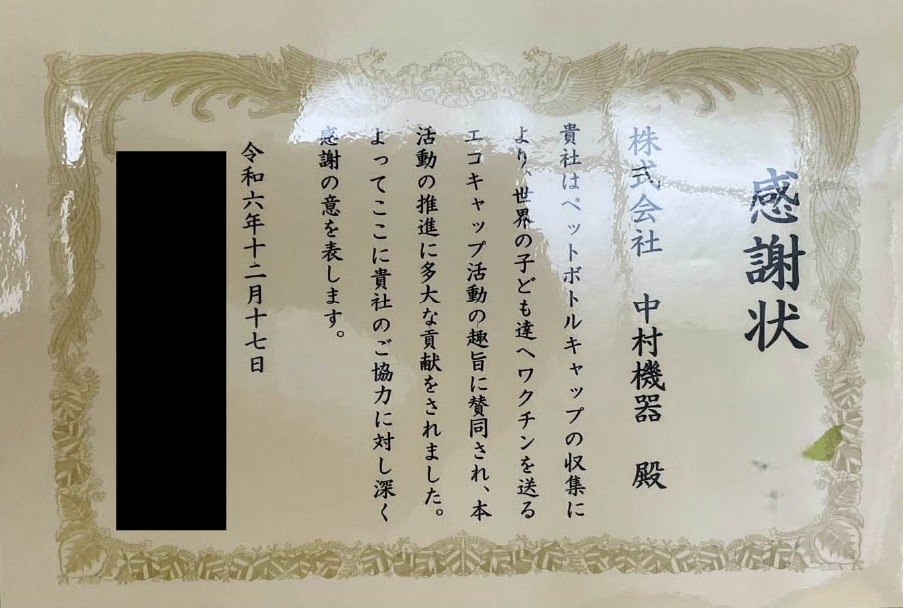 感謝状
株式会社 中村機器 殿
貴社はペットボトルキャップの収集に
より、世界の子ども達へワクチンを送る
エコキャップ活動の趣旨に賛同され、本
活動の推進に多大な貢献をされました。
よってここに貴社のご協力に対し深く
感謝の意を表します。
令和六年十二月十七日